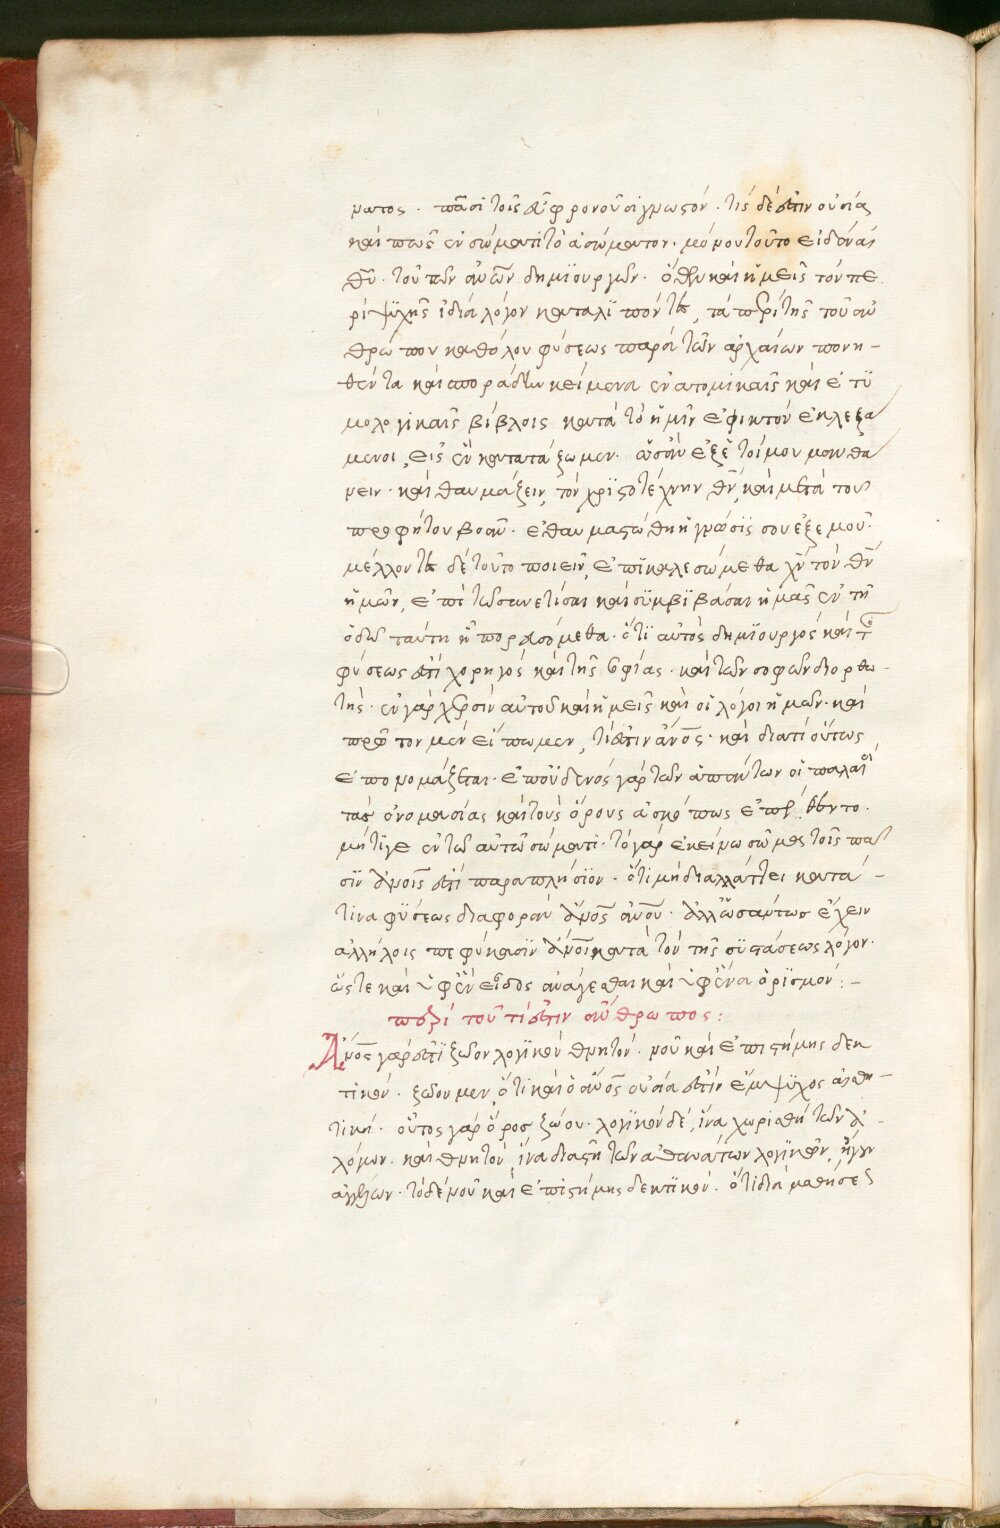 ματος · πᾶσι τοῖς εὖ φρονοῦσι γνωστόν · τίς δέ ἐστιν οὐσία
καὶ πῶς ἐν σώματι τὸ ἀσώματον · μόνου τοῦτο εἰδέναι
θῦ · τοῦ τῶν ὅλων δημϊουργοῦ · ὅθεν καὶ ἡμεῖς τόν πε
ρὶ ψϋχῆς ἰδία λόγον καταλϊπόντες, τὰ περὶ τῆς τοῦ ἀν
θρώπου καθόλου φύσεως παρὰ τῶν ἀρχαίων πονη-
θέντα καὶ σποράδην κείμενα ἐν ἀτομικαῖς καὶ ἐτϋ
μολογικαῖς βίβλοις κατὰ τὸ ἡμῖν ἐφικτόν ἐκλεξά
μενοι, εἰς ἓν κατατάξωμεν · ὡς ἂν ἐξ ἑτοίμου μανθά
νειν · καὶ θαυμάζειν, τόν ἀριστοτέχνην θν̄, καὶ μετὰ τοῦ
προφήτου βοᾶν · ἐθαυμαστώθη ἡ γνῶσϊς σου ἐξ ἐμοῦ ·
μέλλοντες δέ τοῦτο ποιεῖν, ἐπϊκαλεσώμεθα χν̄ τόν θν̄
ἡμῶν, ἐπὶ τῶ συνετίσαι καὶ σϋμβϊβάσαι ἡμᾶς ἐν τῆ
ὁδῶ ταύτη ἧ πορευσόμεθα · ὅτϊ αὐτὸς δημϊουργός καὶ τῆς
φύσεως ἐστὶ χορηγός καὶ τῆς σοφίας · καὶ τῶν σοφῶν διορθω-
τής · ἐν γὰρ χερσὶν αὐτοῦ καὶ ἡμεῖς καὶ οἱ λόγοι ἡμῶν · καὶ
πρῶτον μέν εἴπωμεν, τί ἐστιν ἄνος · καὶ διατί οὕτως
ἐπονομάζεται · ἐπ' οὐδενός γὰρ τῶν ἁπάντων οἱ παλαιοὶ
τάς ὀνομασίας καὶ τοὺς ὅρους ἀσκόπως
μήτϊγε ἐν τῶ αὐτῶ σώματι · τὸ γὰρ ἐκείνω σῶμα τοῖς πᾶ
σϊν ἀνοις ἐστὶ παραπλήσϊον · ὅτι μὴ διαλλάττει κατά -
τινα φϋσέως διαφορὰν ἄνος ἀνου · ἀλλ' ὡσαύτως ἔχειν
ἀλλήλοις πεφύκασϊν ἄνοι κατὰ τόν τῆς σϋστάσεως λόγον ·
ὥστε καὶ ὑφ' ἓν εἶδος ἀνάγεσθαι καὶ ὑφ' ἕνα ὁρϊσμόν : -
περὶ τοῦ τί ἐστιν ἄνθρωπος :
Ἄνος γάρ ἐστϊ ζῶον λογϊκόν θνητόν · νοῦ καὶ ἐπιστήμης δεκ
τικόν · ζῶον μεν, ὅτι καὶ ὁ ἄνος οὐσία ἐστὶν ἔμψϋχος αἰσθη-
τική · οὗτος γὰρ ὅρος ζώου · λογϊκόν δέ, ἵνα χωρισθῆ τῶν ἀ-
λόγων · καὶ θνητόν, ἵνα διαστῆ τῶν ἀθανάτων λογϊκῶν, ἤγουν
ἀγγέλων · τὸ δέ νοῦ καὶ ἐπϊστήμης δεκτϊκόν · ὅτι διὰ μαθήσεως